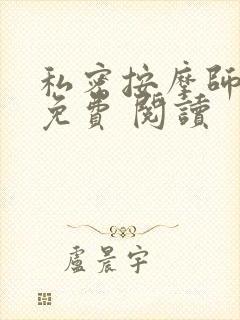 私密按摩師
免費 閱讀
盧晨宇